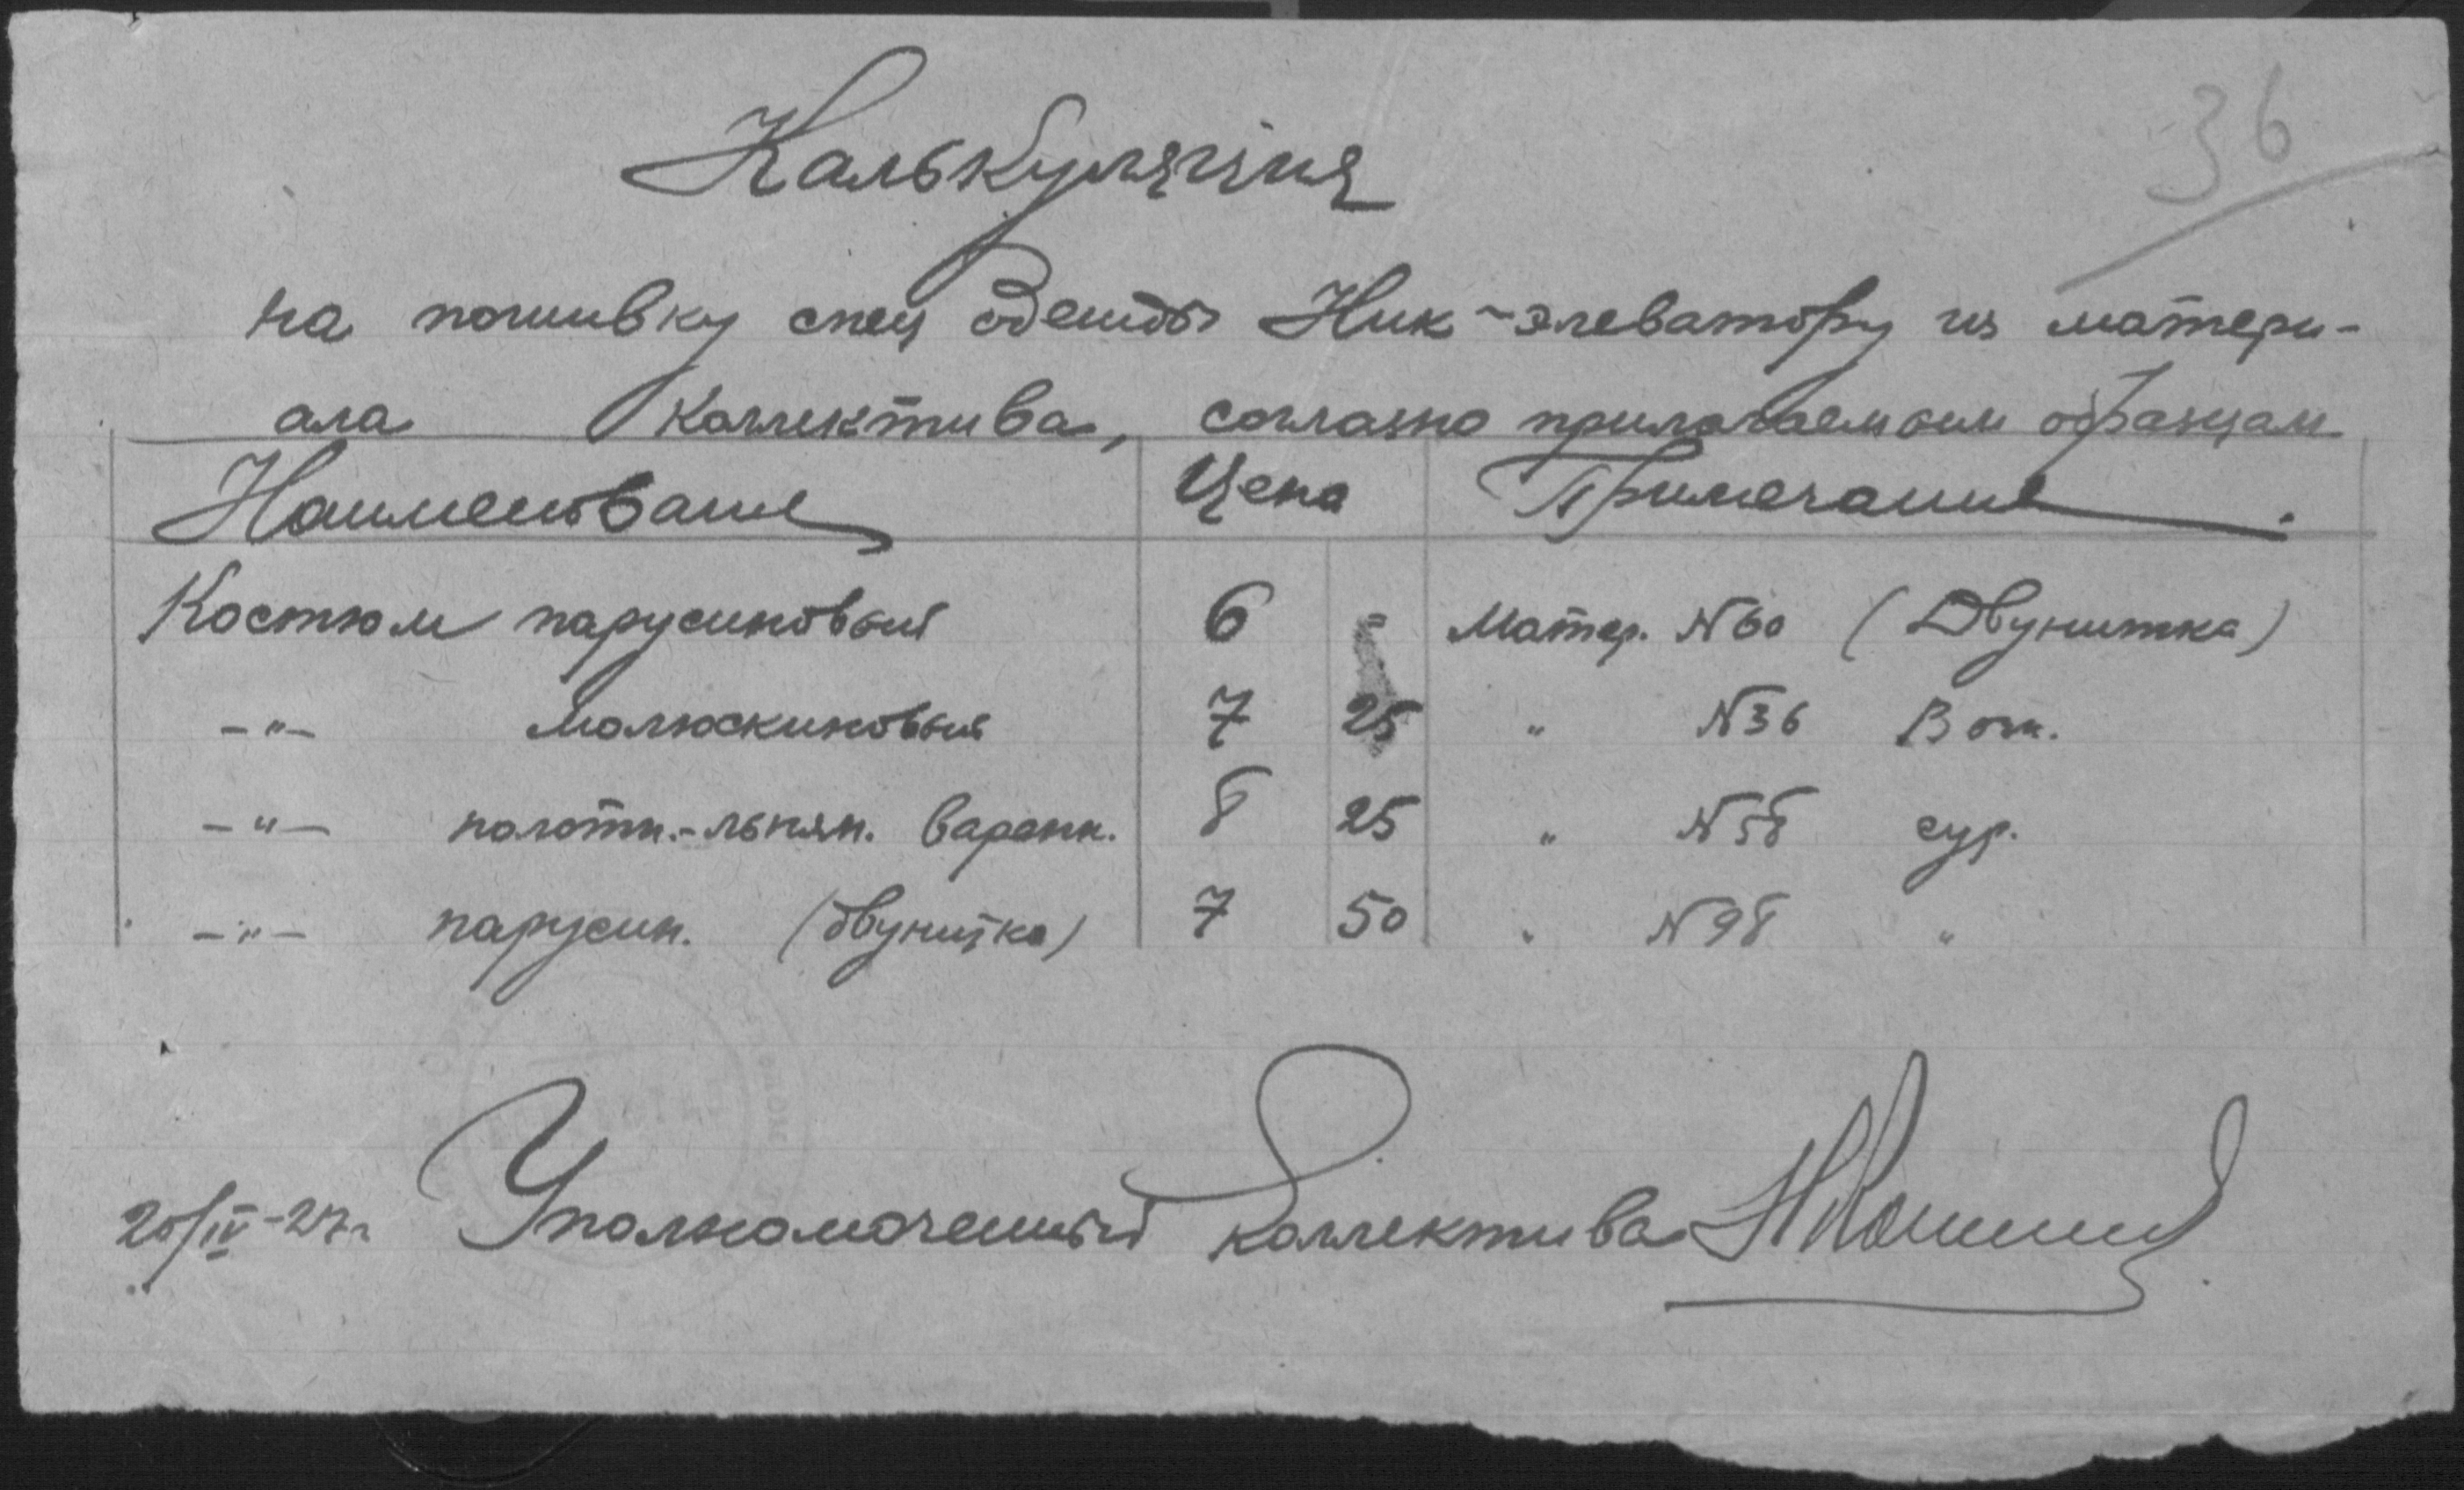 36
Калькуляция
на пошивку спец одежды Ник-элеватору из матери-
ала Коллектива, согласно прилагаемым образцам
Наименование Цена Примечание.
Костюм парусиновый 6 - Матер. N60 (Двунитка)
-"- молюскиновый 7 25 " N36
-"- полотн.-льнян. варенн. 8 25 " N58 сур.
-"- парусин. (двунитка) 7 50 " N98 "
20/IV-27г Уполномоченный коллектива